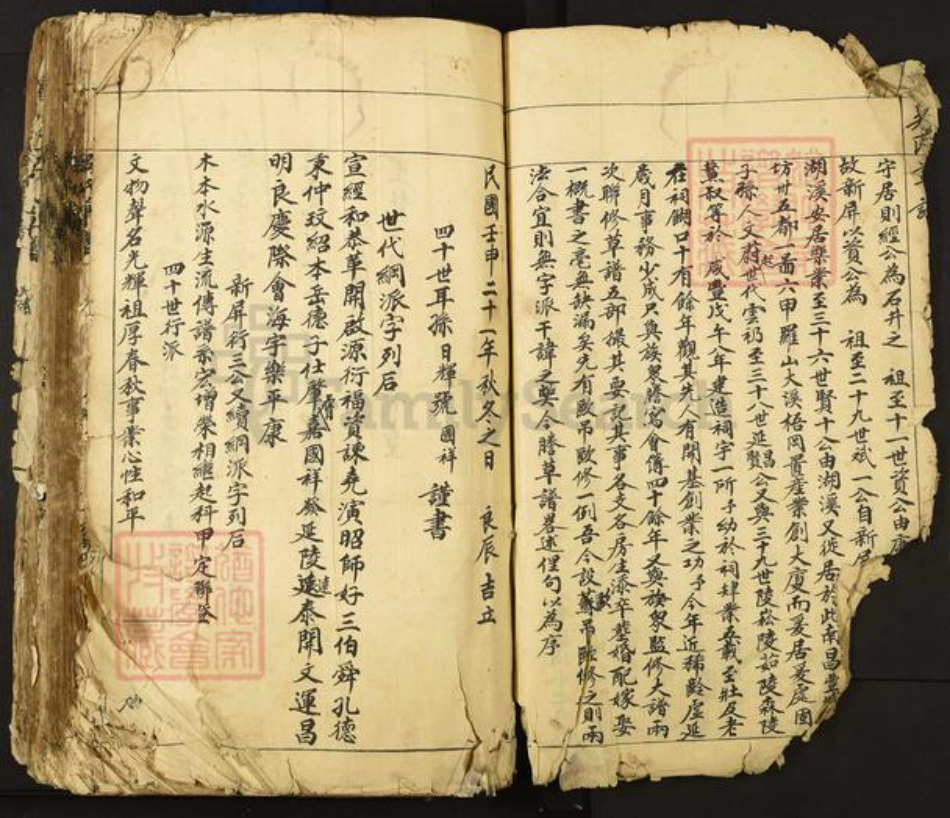 守居則經公為石井之　祖至十一世資公由
故新屏以資公為　祖至二十九世斌一公自新居
湖溪安居樂業至三十六世賢十公由湖溪又徙居於此南昌
坊廿五都一啚六甲羅山大溪梧岡置產業創大廈而爰居爰處
子孫人文蔚起世代雲礽至三十八世延賢昌公又與三十九世陵崧陵茹陵森陵
叔等於　咸豐戊午八年建造祠宇一所予幼於祠肄業五載至壯及老
在祠餬口十有餘年觀其先人有開基創業之功予今年近稀齡虛延
歲月事務少成只與族眾謄寫會傳四十餘年又與族眾監修大譜兩
次聯修草譜五部撮其要記其事各支各房生添卒塟婚配嫁娶
一概書之毫無缺漏矣先有歐吊歐修一例吾今設蘇吊歐修之則兩
法合宜則無字派干諱之獘今謄草譜畧述俚句以為序
民國壬申二十一年秋冬之日　良辰吉立
四十世耳孫日輝號國祥　謹書
世代綱派字列后
宣經和恭華開啟源衍福資諫堯演昭師好三伯舜孔德
秉仲玟紹本岳德子仕肇嘉國祥發延陵達泰開文運昌
明良慶際會海宇樂平康
新屏衍三公又續綱派字列后
木本水源生流傳譜宗宏增榮相繼起科甲定聯登
四十世行派
文物聲名光輝祖厚春秋事業心性和平
FamilySearch